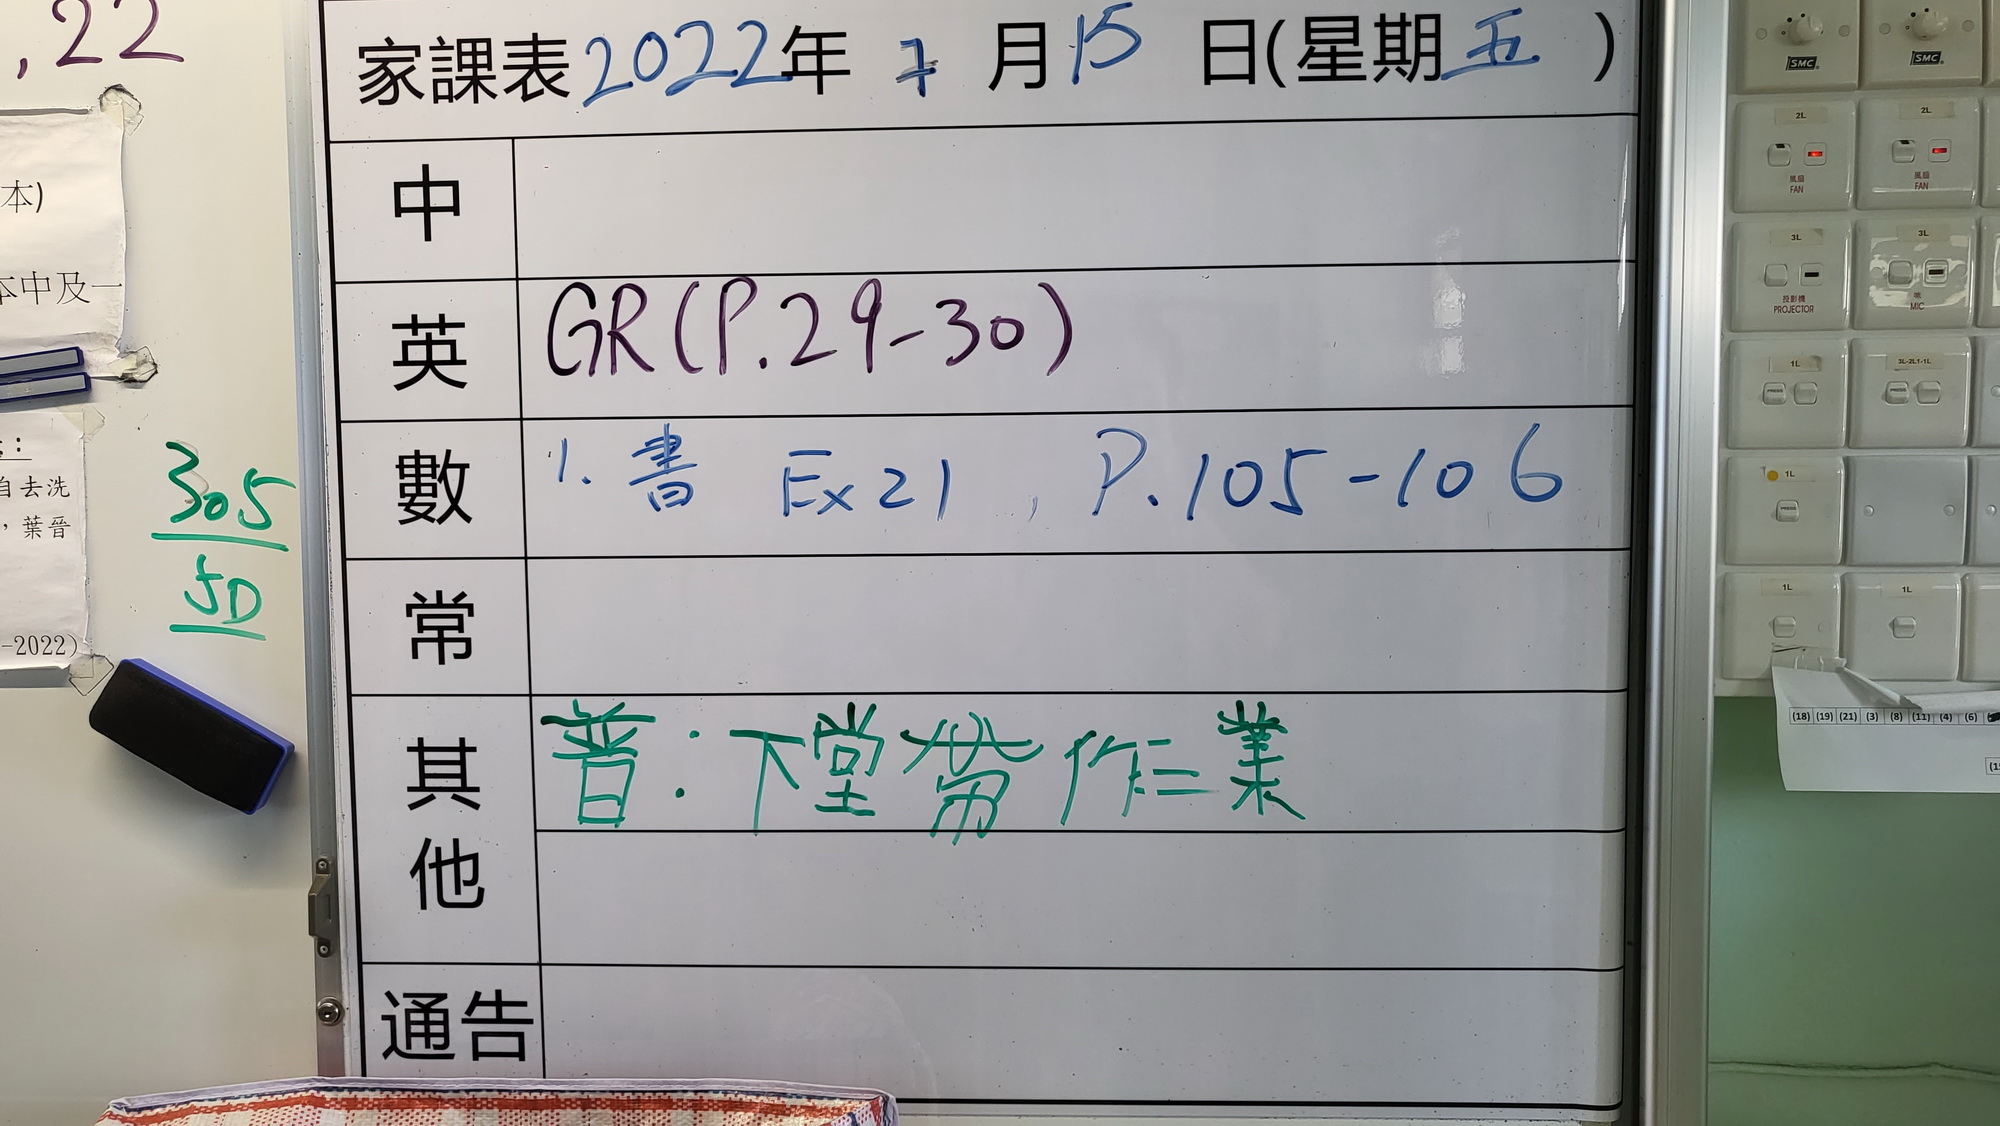 ,22
本)
本中及一
:
自去洗
，葉晉
-2022)
305
5D
家課表2022年 7 月15 日(星期五 )
中
英 GR(P.29-30)
數 1. 書 Ex21 , P.105-106
常
其他 普：下堂帶作業
通告
SMC SMC
2L 2L
風扇 風扇
FAN FAN
3L 3L
投影機 咪
PROJECTOR MIC
1L 3L-2L1-1L
PRESS PRESS
1L
PRESS
1L 1L
(18) (19) (21) (3) (8) (11) (4) (6)